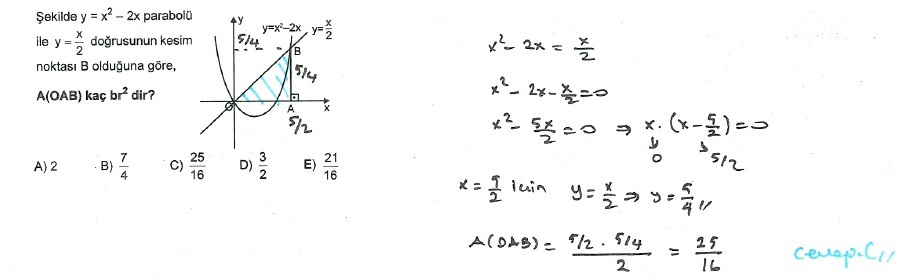 Şekilde y = x² – 2x parabolü
ile y = x/2 doğrusunun kesim
noktası B olduğuna göre,
A(OAB) kaç br² dir?
y
y=x²–2x
y=x/2
5/4
B
5/4
O
A
x
5/2
A) 2 B) 7/4 C) 25/16 D) 3/2 E) 21/16
x² - 2x = x/2
x² - 2x - x/2 = 0
x² - 5x/2 = 0 ⇒ x. (x - 5/2) = 0
0 5/2
x = 5/2 için y = x/2 ⇒ y = 5/4 //
A(OAB) = 5/2 . 5/4 / 2 = 25/16
cevap.C//